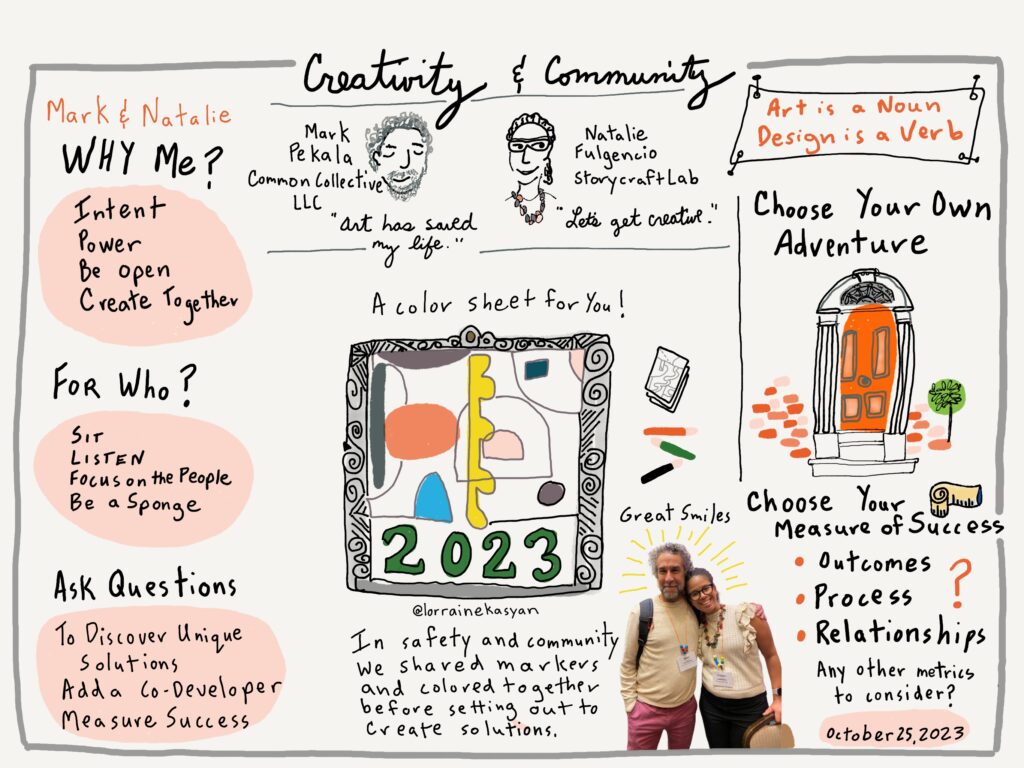 Creativity & Community
Mark & Natalie
WHY Me?
Intent
Power
Be open
Create Together
For Who?
SIT
LISTEN
Focus on the People
Be a Sponge
Ask Questions
To Discover Unique
Solutions
Add a Co-Developer
Measure Success
Mark
Pekala
Common Collective
LLC
"Art has saved
my life."
Natalie
Fulgencio
StorycraftLab
"Let's get creative."
A color sheet for You!
2023
@lorrainekasyan
In safety and community
we shared markers
and colored together
before setting out to
Create solutions.
Great Smiles
Art is a Noun
Design is a Verb
Choose Your Own
Adventure
Choose Your
Measure of Success
• Outcomes
• Process
• Relationships
?
Any other metrics
to consider?
October 25, 2023